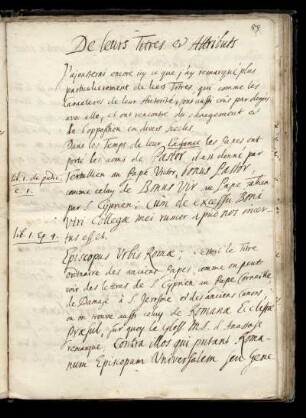 89
De leurs Titres et Attributs
J'ajousteray encore icy ce que j'ay remarqué plus
particulierement de leurs Titres, que comme les
caracteres de leur Authorité, sont aussi crus par degrés
avec elle, et ont rencontré du changement et
de l'opposition en divers siecles.
Dans les Temps de leur les Papes ont
porté les noms de Pastor, il est donné par
lib. 1. de pudic.
c. 1.
Tertullien au Pape Victor, bonus Pastor
comme celuy de Bonus Vir au Pape Fabian
par S. Cyprien; Cum de excessu Boni
lib. 1. Ep. 4.
Viri Collegae mei rumor apud nos incer-
tus esset.
Episcopus Urbis Romae; c'estoit le titre
ordinaire des anciens Papes, comme on peut
voir des lettres de S. Cyprien au Pape Corneille
de Damase à S. Jerosme et des anciens Canons,
on en trouve aussi celuy de Romanae Ecclesiae
Praesul, sur quoy le Gloss. MS. d'Anastase
remarque, Contra Mos qui putant Roma-
num Episcopum Universalem seu Gene